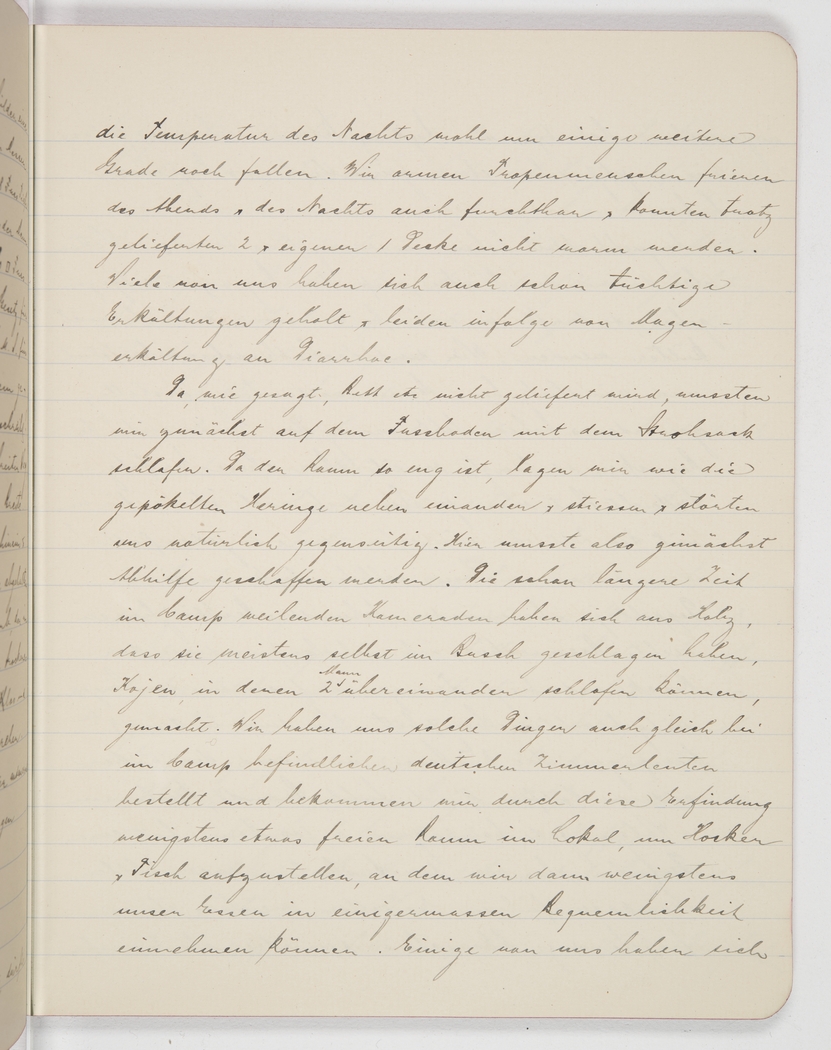 die Temperatur des Nachts wohl um einige weitere
Grade noch fallen. Wir armen Tropenmenschen frieren
des Abends & des Nachts auch furchtbar & konnten trotz
gelieferten 2 & eigener 1 Decke nicht warm werden.
Viele von uns haben sich auch schon tüchtige
Erkältungen geholt & leiden infolge von Magen-
erkältung an Diarrhoe.
Da, wie gesagt, Bett etc nicht geliefert wird, mussten
wir zunächst auf dem Fussboden mit dem Strohsack
schlafen. Da der Raum so eng ist, lagen wir wie die
gepökelten Heringe neben einander & stiessen & störten
uns natürlich gegenseitig. Hier musste also zunächst
Abhilfe geschaffen werden. Die schon längere Zeit
im Camp weilenden Kameraden haben sich aus Holz,
dass sie meistens selbst im Busch geschlagen haben,
Kojen, in denen 2 Mann übereinander schlafen können,
gemacht. Wir haben uns solche Dinger auch gleich bei
im Camp befindlichen deutschen Zimmerleuten
bestellt und bekommen wir durch diese Erfindung
wenigstens etwas freien Raum im Lokal, um Hocker
& Tisch aufzustellen, an dem wir dann wenigstens
unser Essen in einigermassen Bequemlichkeit
einnehmen können. Einige von uns haben sich